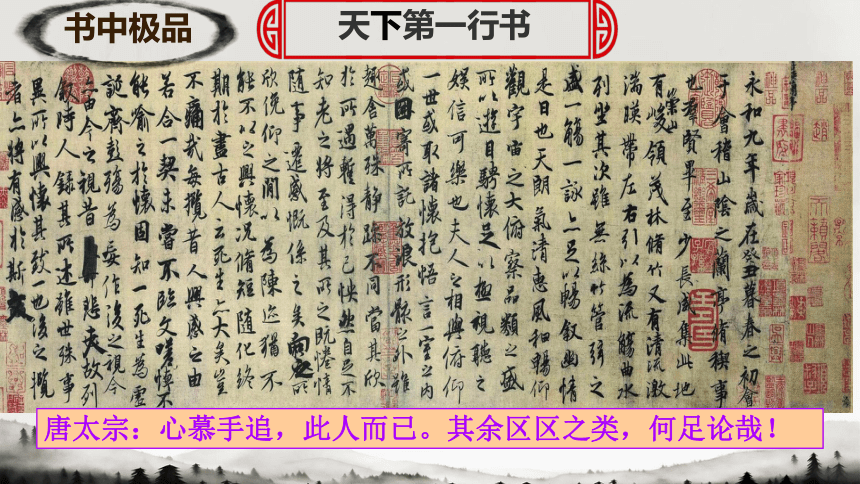 书中极品
天下第一行书
永和九年歲在癸丑暮春之初會
于會稽山陰之蘭亭脩稧事
也羣賢畢至少長咸集此地
有崇山峻領茂林脩竹又有清流激
湍暎帶左右引以為流觴曲水
列坐其次雖無絲竹管弦之
盛一觴一詠亦足以暢敘幽情
是日也天朗氣清惠風和暢仰
觀宇宙之大俯察品類之盛
所以遊目騁懷足以極視聽之
娛信可樂也夫人之相與俯仰
一世或取諸懷抱悟言一室之內
或因寄所託放浪形骸之外雖
趣舍萬殊靜躁不同當其欣
於所遇暫得於己怏然自足不
知老之將至及其所之既惓情
隨事遷感慨係之矣向之所
欣俛仰之間以為陳迹猶不
能不以之興懷況脩短隨化終
期於盡古人云死生亦大矣豈
不痛哉每攬昔人興感之由
若合一契未嘗不臨文嗟悼不
能喻之於懷固知一死生為虛
誕齊彭殤為妄作後之視今
亦由今之視昔悲夫故列
敘時人錄其所述雖世殊事
異所以興懷其致一也後之攬
者亦將有感於斯文
唐太宗：心慕手追，此人而已。其余区区之类，何足论哉！